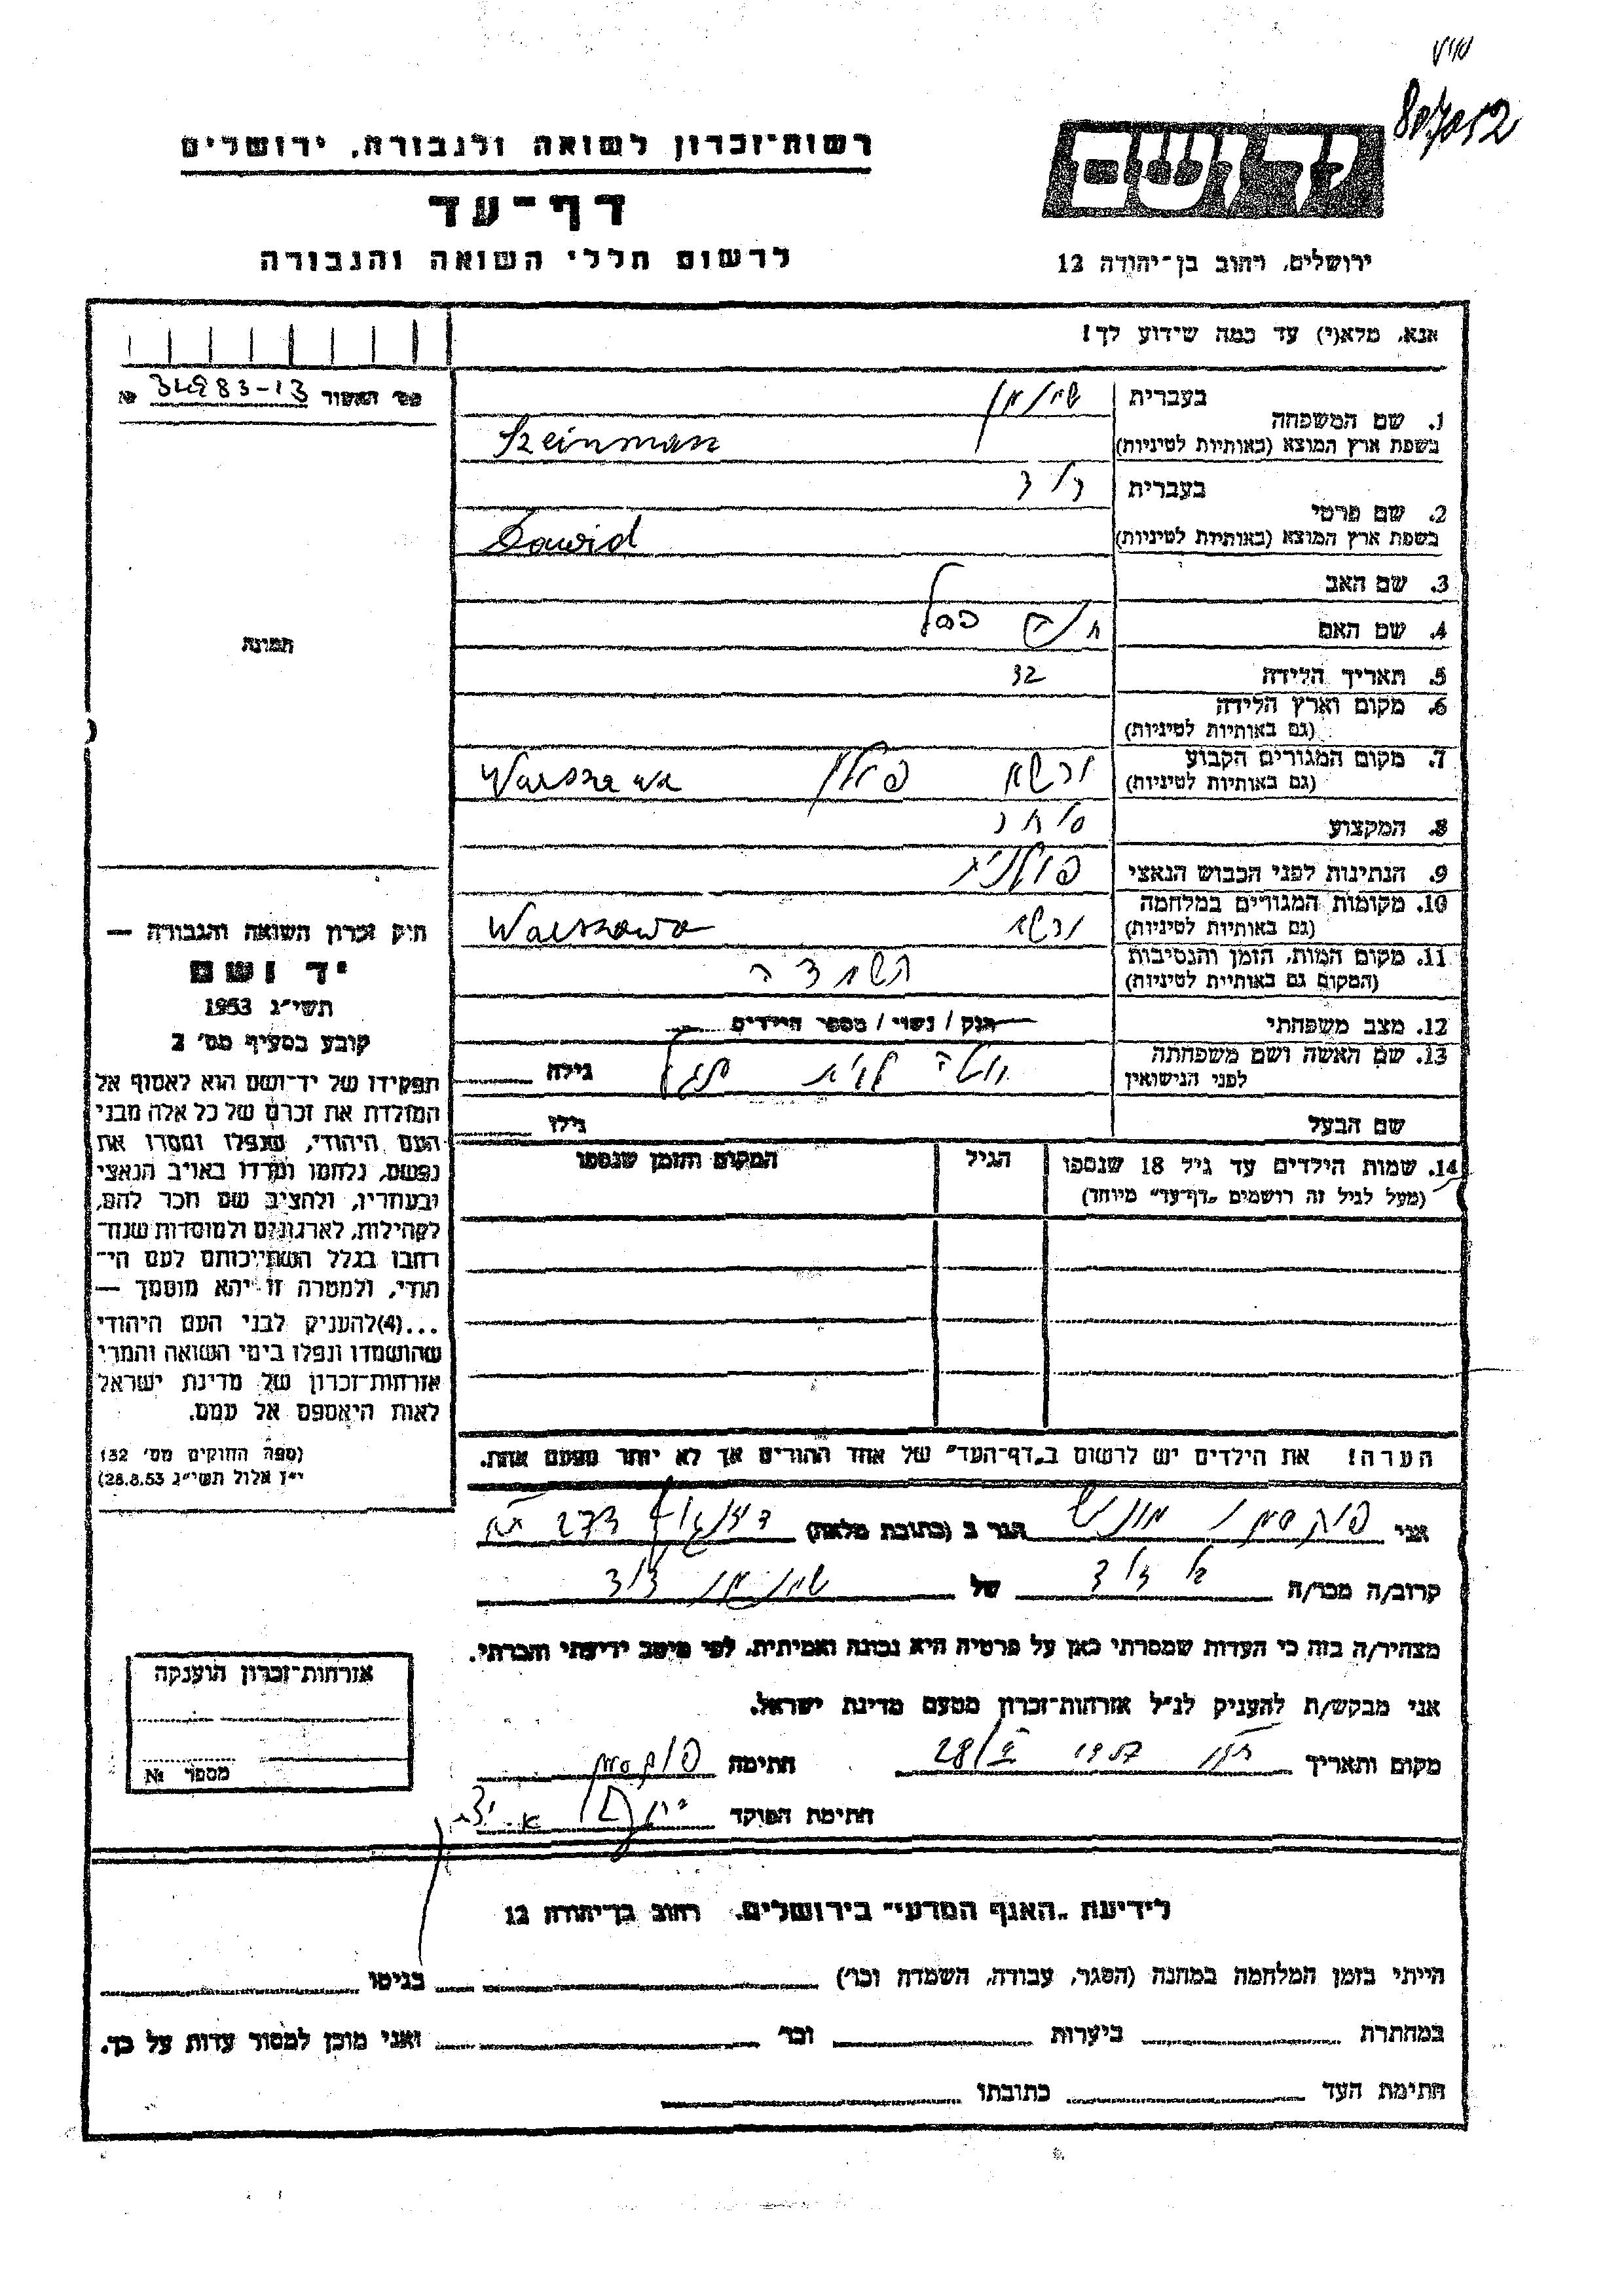 רשות־זכרון לשואה ולגבורה, ירושלים
דף־עד
לרשום חללי השואה והגבורה
ידושם
ירושלים, רחוב בן־יהודה 12
אנא, מלא(י) עד כמה שידוע לך!
מס׳ האשור 34983-13 №
תמונה
1. שם המשפחה
בעברית שיינמן
בשפת ארץ המוצא (באותיות לטיניות) Szeinman
2. שם פרטי
בעברית דוד
בשפת ארץ המוצא (באותיות לטיניות) Dawid
3. שם האב
4. שם האם
5. תאריך הלידה 32
6. מקום וארץ הלידה
(גם באותיות לטיניות)
7. מקום המגורים הקבוע ורשא פולין Warszawa
(גם באותיות לטיניות)
8. המקצוע סוחר
9. הנתינות לפני הכבוש הנאצי פולנית
10. מקומות המגורים במלחמה ורשא Warszawa
(גם באותיות לטיניות)
11. מקום המות, הזמן והנסיבות השמדה
(המקום גם באותיות לטיניות)
12. מצב משפחתי רוק / נשוי / מספר הילדים
13. שם האשה ושם משפחתה גילה
לפני הנישואין
שם הבעל גילו
14. שמות הילדים עד גיל 18 שנספו הגיל המקום והזמן שנספו
(מעל לגיל זה רושמים „דף־עד” מיוחד)
הערה! את הילדים יש לרשום ב„דף־העד” של אחד ההורים אך לא יותר מפעם אחת.
חוק זכרון השואה והגבורה —
יד ושם
תשי״ג 1953
קובע בסעיף מס׳ 2
תפקידו של יד־ושם הוא לאסוף אל
המולדת את זכרם של כל אלה מבני
העם היהודי, שנפלו ומסרו את
נפשם, נלחמו ומרדו באויב הנאצי
ובעוזריו, ולהציב שם וזכר להם,
לקהילות, לארגונים ולמוסדות שנח־
רבו בגלל השתייכותם לעם הי־
הודי, ולמטרה זו יהא מוסמך —
...(4) להעניק לבני העם היהודי
שהושמדו ונפלו בימי השואה והמרי
אזרחות־זכרון של מדינת ישראל
לאות היאספם אל עמם.
(ספר החוקים מס׳ 132
י״ז אלול תשי״ג 28.8.53)
אני הגר ב (כתובת מלאה) דיזנגוף 273 תא
קרוב/ה מכר/ה של שיינמן דוד
מצהיר/ה בזה כי העדות שמסרתי כאן על פרטיה היא נכונה ואמיתית, לפי מיטב ידיעתי והכרתי.
אני מבקש/ת להעניק לנ״ל אזרחות־זכרון מטעם מדינת ישראל.
מקום ותאריך חתימה
חתימת הפוקד
אזרחות־זכרון הוענקה
מספר №
לידיעת „האגף המדעי” בירושלים, רחוב בן־יהודה 12
הייתי בזמן המלחמה במחנה (הסגר, עבודה, השמדה וכו׳) בגיטו
במחתרת ביערות וכו׳ ואני מוכן למסור עדות על כך.
חתימת העד כתובתו